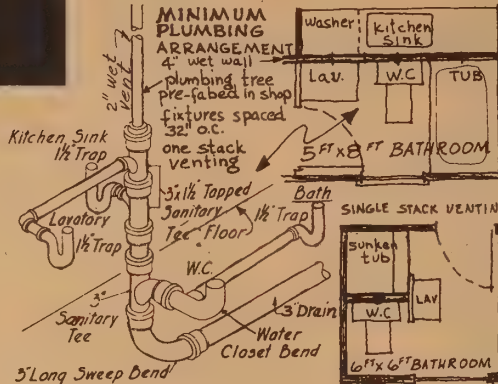 MINIMUM
PLUMBING
ARRANGEMENT
4" wet wall
plumbing tree
pre-fabed in shop
fixtures spaced
32" o.c.
one stack
venting
2" wet
vent
Kitchen Sink
1½" Trap
Lavatory
1½" Trap
3"x1½" Tapped
Sanitary
Tee
Floor
Bath
1½" Trap
W.C.
3"
Sanitary
Tee
3" Drain
Water
Closet Bend
3" Long Sweep Bend
washer
kitchen
sink
Lav.
W.C
TUB
5 FT x 8 FT BATHROOM
SINGLE STACK VENTIN
sunken
tub
W.C
LAV
6 FT x 6 FT BATHROOM